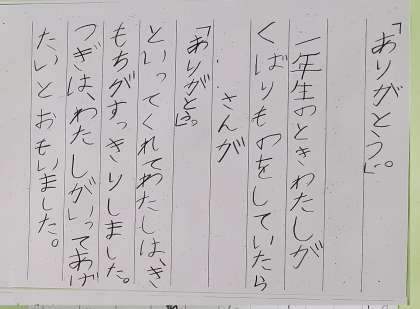 「ありがとう。」
一年生のときわたしが
くばりものをしていたら
さんが
「ありがとう。」
といってくれてわたしは、き
もちがすっきりしました。
つぎは、わたしがいってあげ
たいとおもいました。